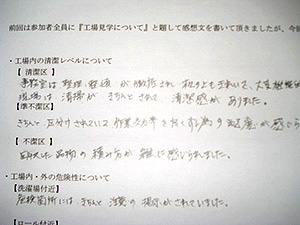 前回は参加者全員に『工場見学について』と題して感想文を書いて頂きましたが、今
・工場内の清潔レベルについて
【 清潔区 】
事務室は整理・整頓が徹底され 机の上もきれいで、
現場は 清掃が きちんとされて 清潔感が ありました。
【準不潔区】
きちんと 区分けされている 作業
【 不潔区 】
品物の 積み方が 雑に感じられました。
・工場内・外の危険性について
【洗濯場付近】
危険箇所には きちんと 注意の 掲示がされていました。
【ロール付近】